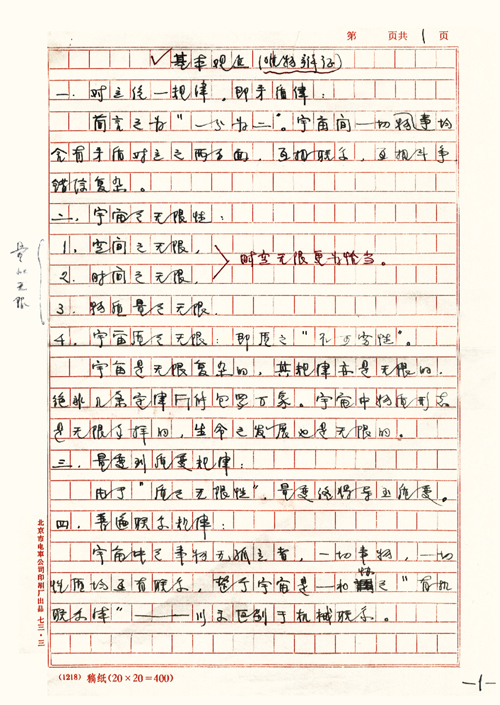 第 页共 1 页
基本观点(唯物辩证)
一. 对立统一规律,即矛盾律:
简言之为“一分为二”。宇宙间一切物事均
含有矛盾对立之两方面,互相联系,互相斗争,
错综复杂。
二. 宇宙之无限性:
1. 空间之无限,
2. 时间之无限,
时空无限更为恰当。
量的无限
3. 物质量之无限.
4. 宇宙质之无限:即质之“不可穷性”。
宇宙是无限复杂的,其规律亦是无限的.
绝非几条定律所能包罗万象。宇宙中物质形态
是无限多样的,生命之发展也是无限的。
三. 量变到质变规律:
由于“质之无限性”,量变终将导至质变。
四. 普遍联系规律:
宇宙中之事物无孤立者,一切事物,一切
性质均互有联系,整个宇宙是一和之“有机
联系律”——以区别于机械联系。
北京市电车公司印刷厂出品 七三·三
(1218) 稿纸(20×20=400)
—1—